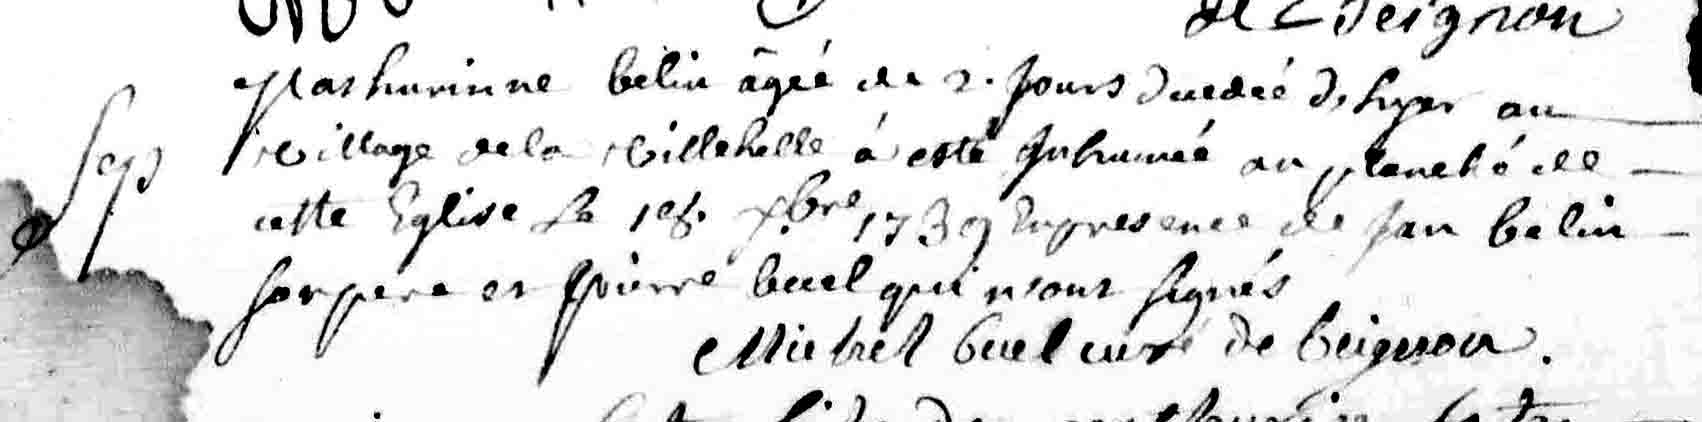 de Beignon
Mathurinne belin âgée de 2. Jours ducdée d'hyer au
sep village de la villehelle à esté Inhumée au planché de
cette Eglise Le 18. xbre 1739 En presence de Jan belin
son pere et pierre buel qui n'ont signés
Michel buel curé de beignon.